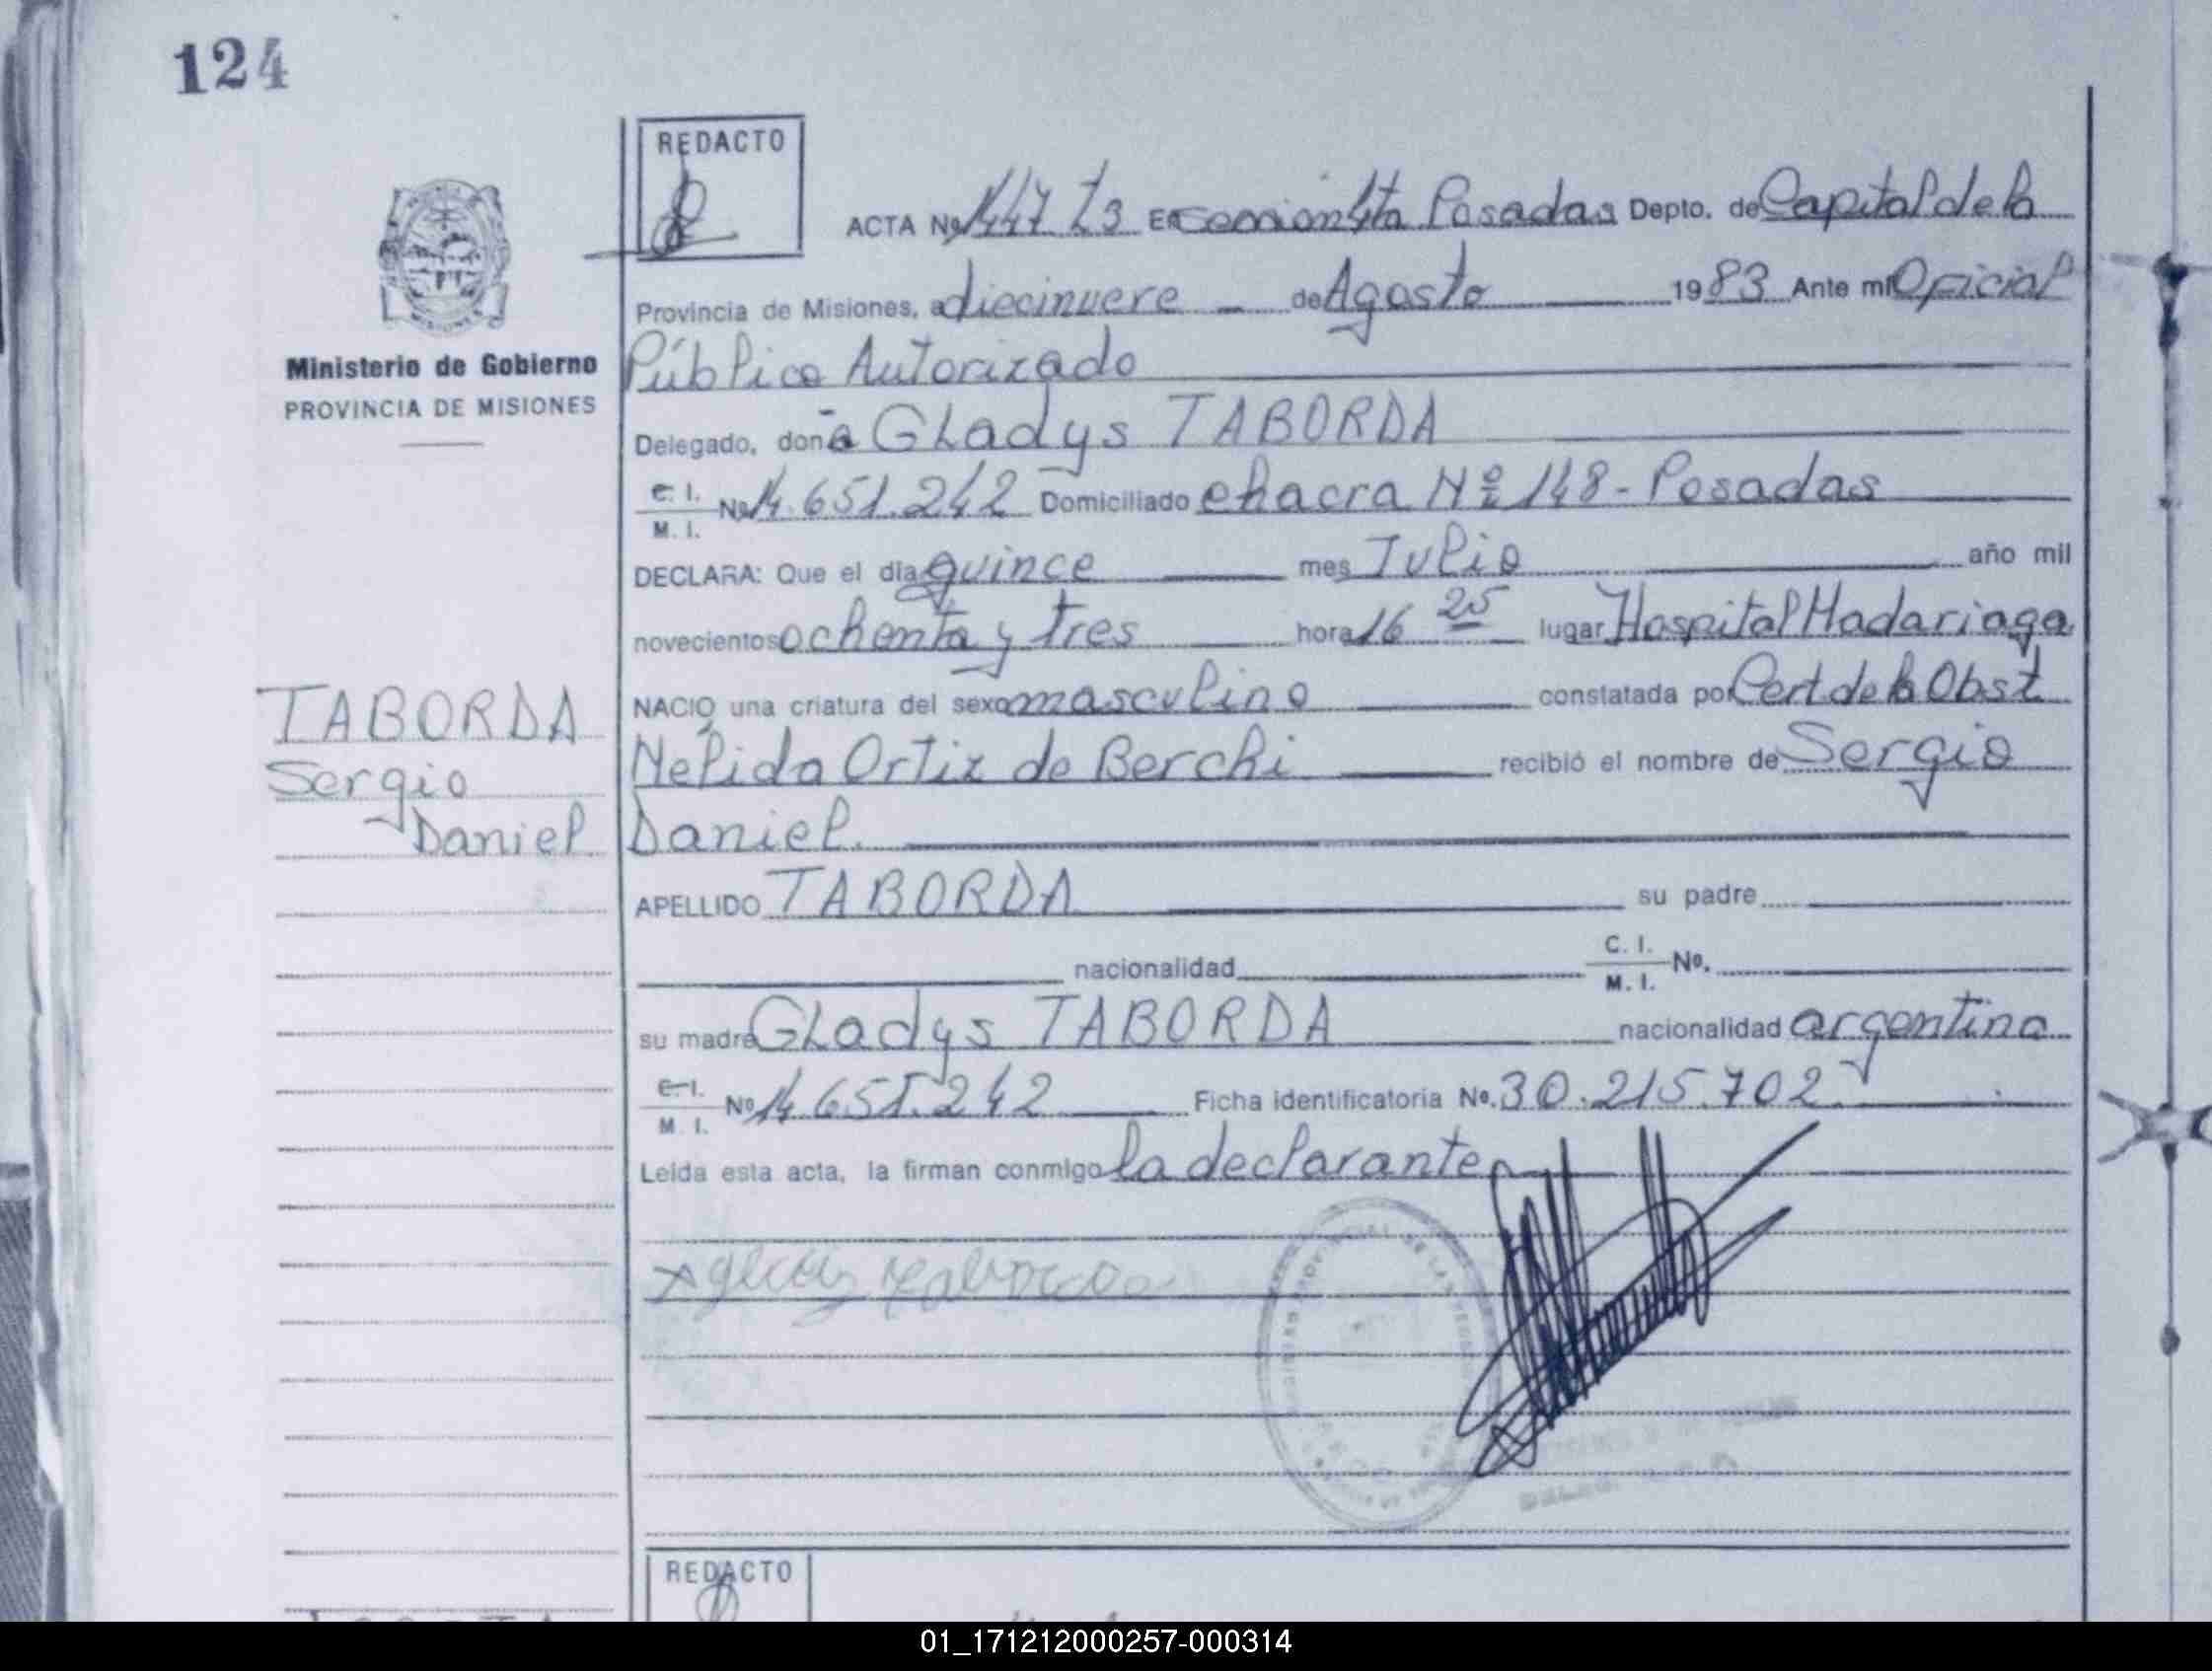 124
REDACTO
ACTA Nº 447 T3 En Posadas Depto. de Capital de la
Provincia de Misiones, a diecinueve de Agosto 1983 Ante mi Oficial
Ministerio de Gobierno
PROVINCIA DE MISIONES
Público Autorizado
Delegado, doña Gladys TABORDA
C. I.
M. I. Nº 14.651.242 Domiciliado chacra Nº 148 - Posadas
DECLARA: Que el día quince mes Julio año mil
novecientos ochenta y tres hora 16 25 lugar Hospital Madariaga
NACIO una criatura del sexo masculino constatada por Cert de la Obst
TABORDA
Sergio
Daniel
Nelida Ortiz de Berchi recibió el nombre de Sergio
Daniel.
APELLIDO TABORDA su padre
nacionalidad C. I.
M. I. Nº.
su madre Gladys TABORDA nacionalidad argentina
C. I.
M. I. Nº 14.651.242 Ficha identificatoria Nº. 30.215.702.
Leida esta acta, la firman conmigo la declarante
REDACTO
01_171212000257-000314